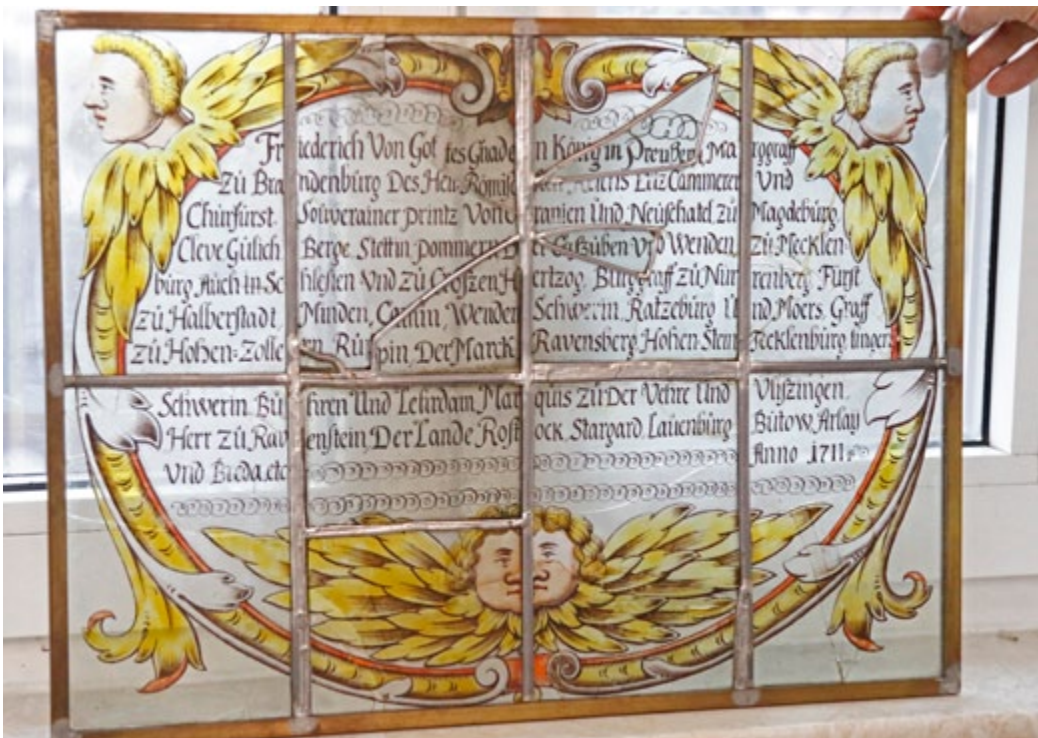 Friederich Von Gottes Gnaden König in Preußen Marggraff
zů Brandenbůrg Des Heil. Römischen Reichs Ertz Cammerer Vnd
Chůrfürst Souverainer printz Von Oranien Und Neůfchatel zů Magdebůrg
Cleve Gůlich Berge Stettin pommern Der Caßůben Vnd Wenden zů Mecklen
bůrg Auch in Schlesien Vnd zů Croßzen Hertzog. Bůrggraff zů Nůrrenberg Fůrst
zů Halberstadt, Minden, Camin, Wenden Schwerin, Ratzebůrg Und Moers. Graff
zů Hohen=Zollern Růppin Der Marck Ravensberg Hohen Stein Tecklenbůrg lingen
Schwerin Bůhren Und Lehrdam Marquis zů Der Vehre Und Vlißzingen.
Herr zů Ravenstein Der Lande Rostock Stargard Laůenbůrg Bůtow Arlay
Vnd Breda etc Anno 1711